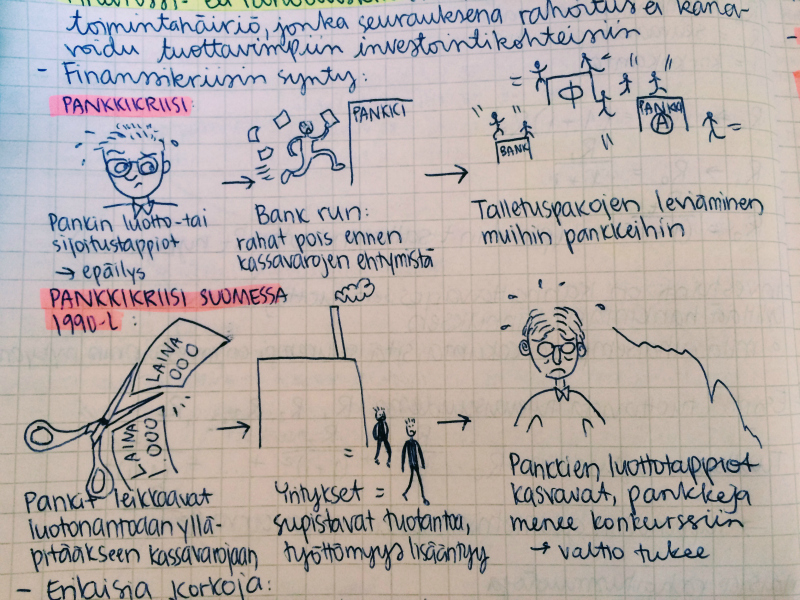 toimintahäiriö, jonka seurauksena rahoitus ei kana-
voidu tuottavimpiin investointikohteisiin
- Finanssikriisin synty:
PANKKIKRIISI:
PANKKI
BANK
PANKKI
Pankin luotto- tai
sijoitustappiot
→ epäilys
Bank run:
rahat pois ennen
kassavarojen ehtymistä
Talletuspakojen leviäminen
muihin pankkeihin
PANKKIKRIISI SUOMESSA
1990-L:
LAINA
000
LAINA
000
Pankit leikkaavat
luotonantoaan yllä-
pitääkseen kassavarojaan
Yritykset =
supistavat tuotantoa,
työttömyys lisääntyy
Pankkien luottotappiot
kasvavat, pankkeja
menee konkurssiin
→ valtio tukee
- Erilaisia korkoja: